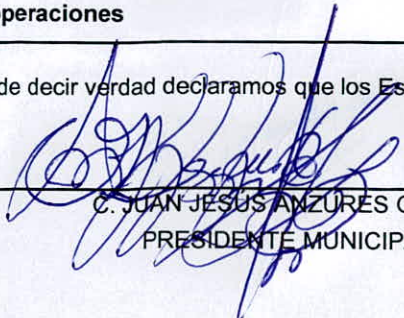 operaciones
de decir verdad declaramos que los Es
C. JUAN JESUS ANZURES
PRESIDENTE MUNICIPA